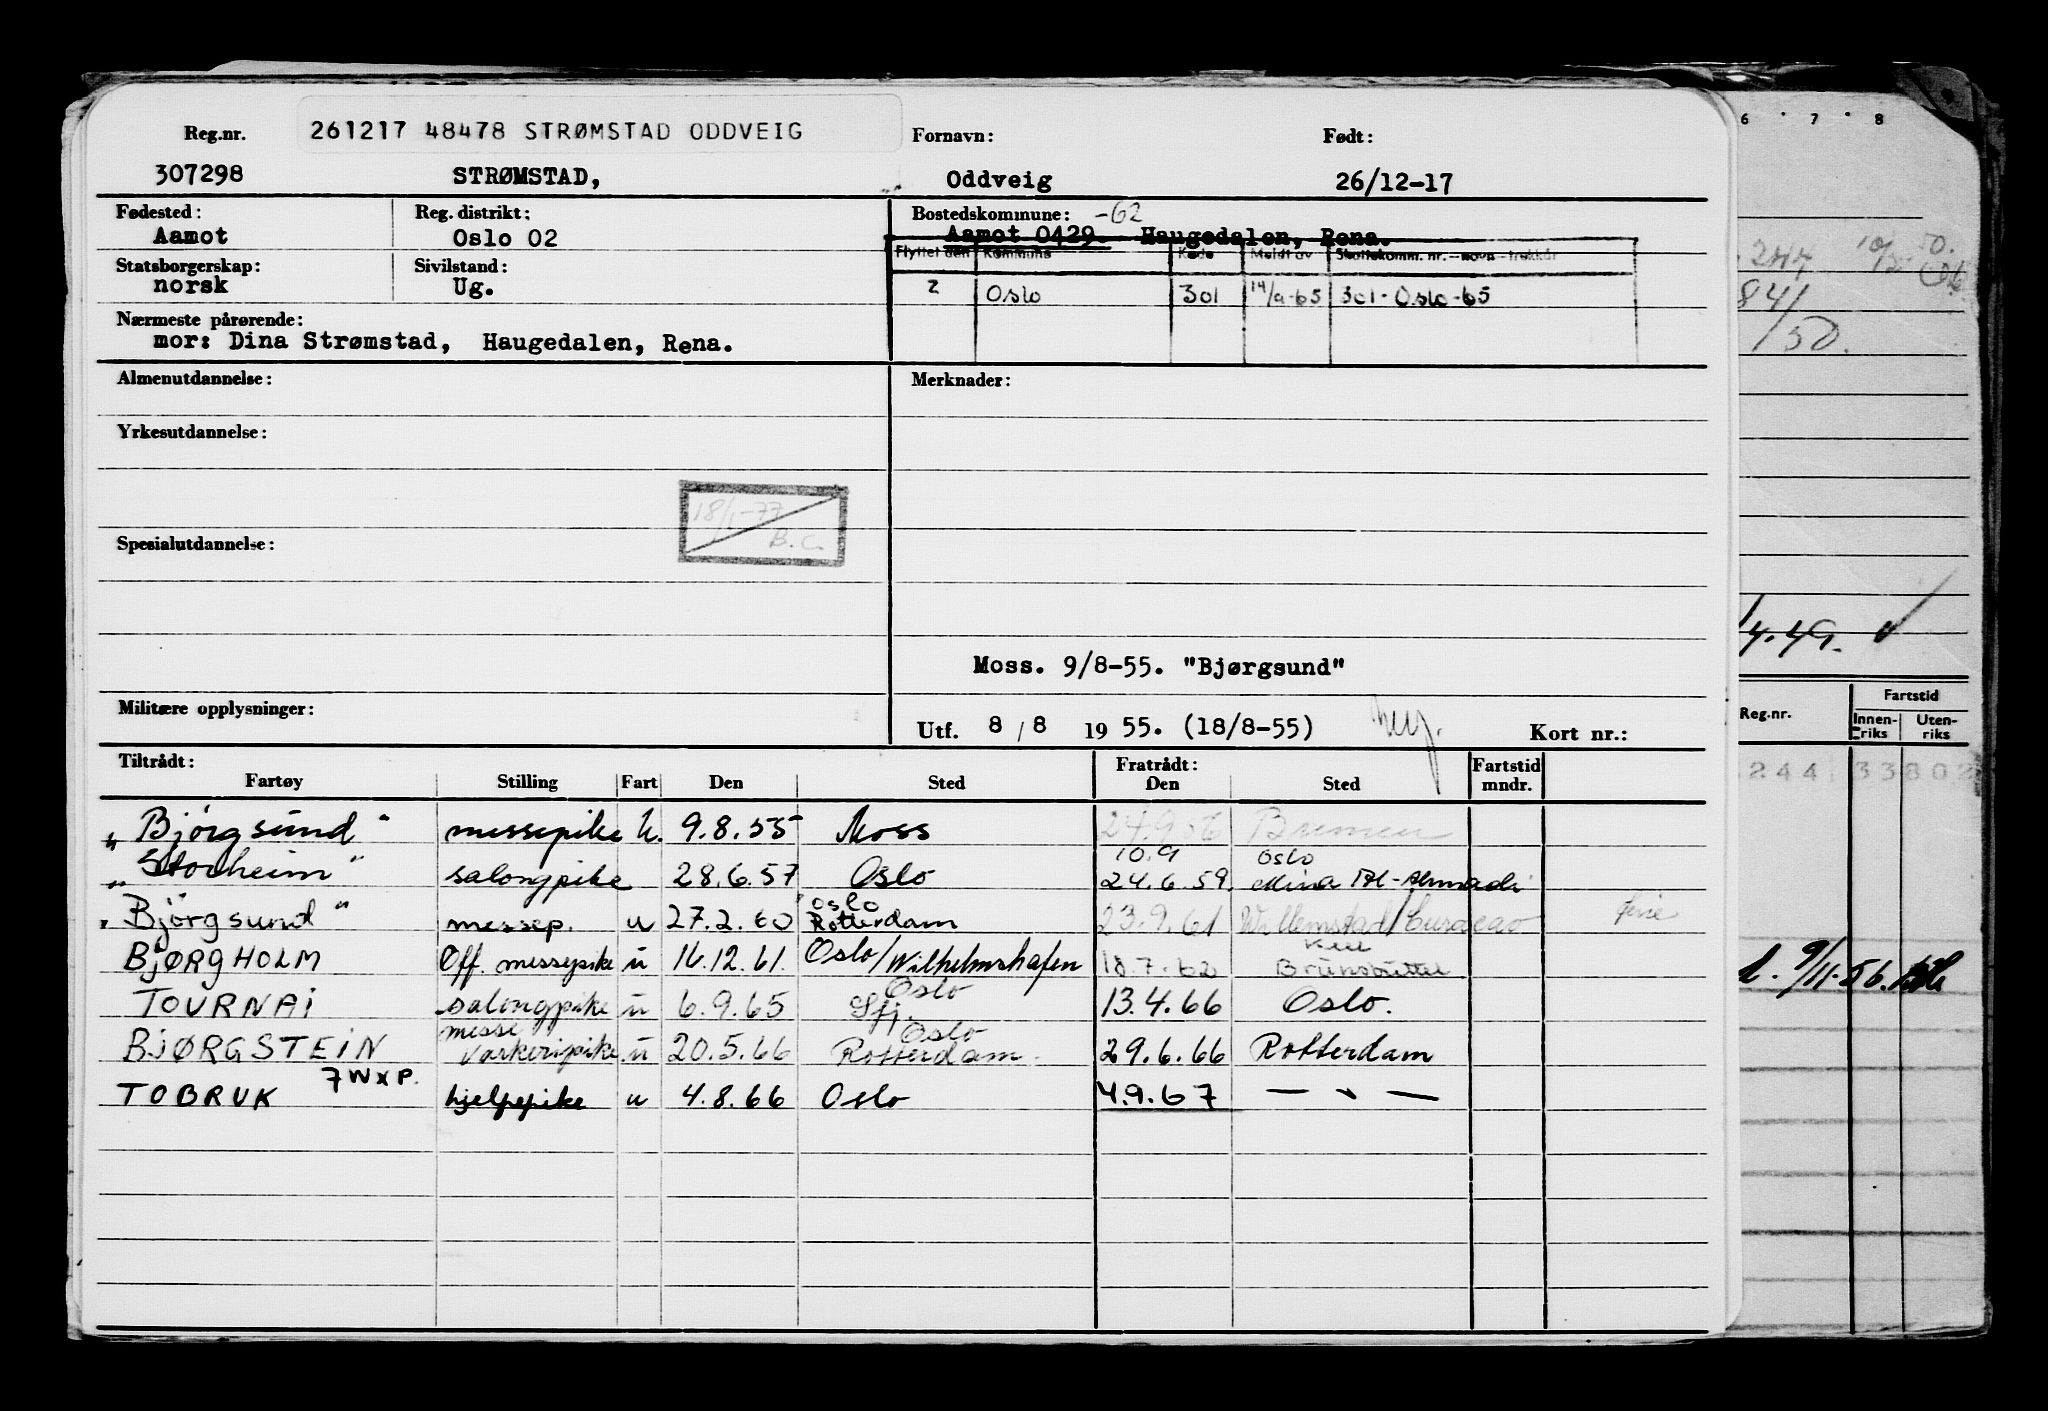 Reg.nr. 261217 48478 STRØMSTAD ODDVEIG Fornavn: Født:
307298 STRØMSTAD, Oddveig 26/12-17
Fødested: Reg. distrikt: Bostedskommune: -62
Aamot Oslo 02 Aamot 0429. Haugedalen, Rena.
Flyttet den Kommune Kode Meldt av Skattekomm. nr. - navn - trekkår
Statsborgerskap: Sivilstand:
norsk Ug. 2 Oslo 301 14/9-65 301-Oslo-65
Nærmeste pårørende:
mor: Dina Strømstad, Haugedalen, Rena.
Almenutdannelse: Merknader:
Yrkesutdannelse:
18/1-77
B.C.
Spesialutdannelse:
Moss. 9/8-55. "Bjørgsund"
Militære opplysninger:
Utf. 8/8 1955. (18/8-55) Kort nr.:
Tiltrådt: Fratrådt: Fartstid
Fartøy Stilling Fart Den Sted Den Sted mndr.
"Bjørgsund" messepike u. 9.8.55 Moss 24.9.56 Bremen
10.9 Oslo
"Storheim" salongpike 28.6.57 Oslo 24.6.59. Mina Al-Ahmadi
Oslo
"Bjørgsund" messep. u 27.2.60 Rotterdam 23.9.61 Willemstad/Curacao ferie
Kiel
BJØRGHOLM Off. messepike u 16.12.61 Oslo/Wilhelmshafen 18.7.62 Brunsbüttel
Oslo
TOURNAI salongpike u 6.9.65 Sfj. 13.4.66 Oslo.
messe Oslo
BJØRGSTEIN varkeripike u 20.5.66 Rotterdam. 29.6.66 Rotterdam
7WXP.
TOBRUK hjelpepike u 4.8.66 Oslo 4.9.67 — " —
6 7 8
244 10/5 50.
841
/50.
4.49.
Reg.nr. Fartstid
Innenriks Utenriks
244 33802
9/11-56